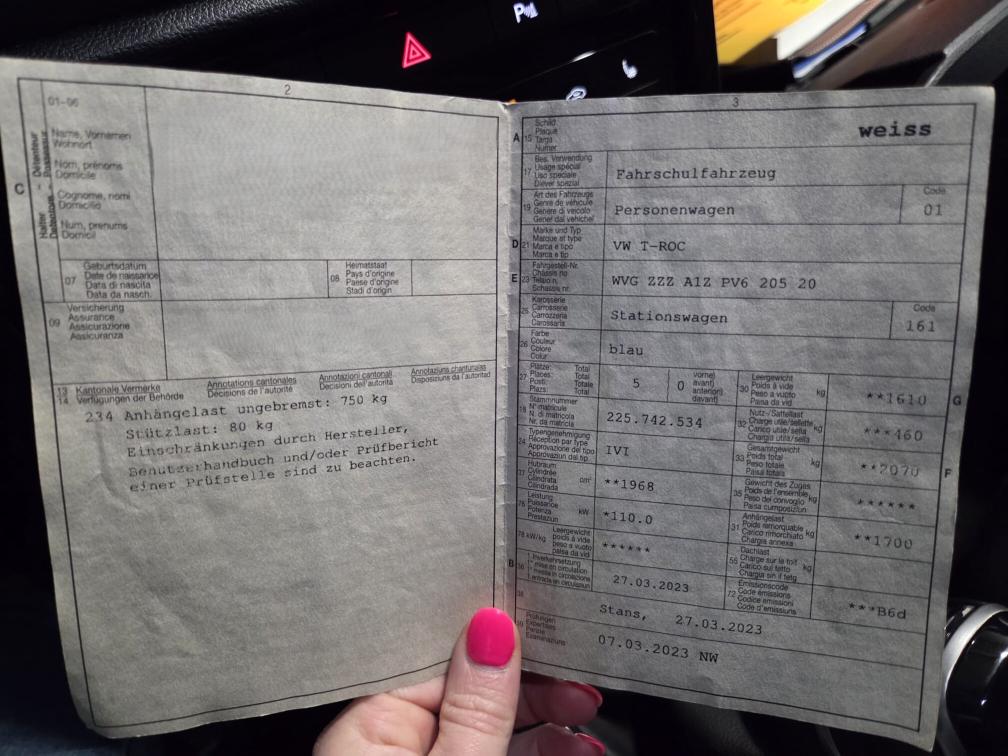 P
2
01-06
C
Halter - Détenteur
Detentore - Possessur
Name, Vornamen
Wohnort
Nom, prénoms
Domicile
Cognome, nomi
Domicilio
Num, prenums
Domicil
07
Geburtsdatum
Date de naissance
Data di nascita
Data da nasch.
08
Heimatstaat
Pays d'origine
Paese d'origine
Stadi d'origin
09
Versicherung
Assurance
Assicurazione
Assicuranza
13
14
Kantonale Vermerke
Verfügungen der Behörde
Annotations cantonales
Décisions de l'autorité
Annotazioni cantonali
Decisioni dell'autorità
Annotaziuns chantunalas
Disposiziuns da l'autoritad
234 Anhängelast ungebremst: 750 kg
Stützlast: 80 kg
Einschränkungen durch Hersteller,
Benutzerhandbuch und/oder Prüfbericht
einer Prüfstelle sind zu beachten.
3
A
15
Schild
Plaque
Targa
Numer
weiss
17
Bes. Verwendung
Usage spécial
Uso speciale
Diever spezial
Fahrschulfahrzeug
19
Art des Fahrzeugs
Genre de véhicule
Genere di veicolo
Gener dal vehichel
Personenwagen
Code
01
D
21
Marke und Typ
Marque et type
Marca e tipo
Marca e tip
VW T-ROC
E
23
Fahrgestell-Nr.
Châssis no
Telaio n.
Schassis nr.
WVG ZZZ A1Z PV6 205 20
25
Karosserie
Carrosserie
Carrozzeria
Carossaria
Stationswagen
Code
161
26
Farbe
Couleur
Colore
Colur
blau
27
Plätze: Total
Places: Total
Posti: Totale
Plazs: Total
5
0
vorne)
avant)
anteriori)
davant)
30
Leergewicht
Poids à vide
Peso a vuoto
Paisa da vid
kg
**1610
G
18
Stammnummer
N° matricule
N. di matricola
Nr. da matricla
225.742.534
32
Nutz-/Sattellast
Charge utile/sellette
Carico utile/sella
Chargia utila/sella
kg
***460
24
Typengenehmigung
Réception par type
Approvazione del tipo
Approvaziun dal tip
IVI
33
Gesamtgewicht
Poids total
Peso totale
Paisa totala
kg
**2070
F
37
Hubraum
Cylindrée
Cilindrata
Cilindrada
cm³
**1968
35
Gewicht des Zuges
Poids de l'ensemble
Peso del convoglio
Paisa cumposiziun
kg
******
76
Leistung
Puissance
Potenza
Prestaziun
kW
*110.0
31
Anhängelast
Poids remorquable
Carico rimorchiato
Chargia annexa
kg
**1700
78 kW/kg
Leergewicht
poids à vide
peso a vuoto
paisa da vid
******
55
Dachlast
Charge sur le toit
Carico sul tetto
Chargia sin il tetg
kg
B
36
1. Inverkehrsetzung
1re mise en circulation
1. messa in circolazione
1. entrada en circulaziun
27.03.2023
72
Emissionscode
Code émissions
Codice emissioni
Code d'emissiuns
***B6d
38
Stans, 27.03.2023
39
Prüfungen
Expertises
Perizie
Examinaziuns
07.03.2023 NW